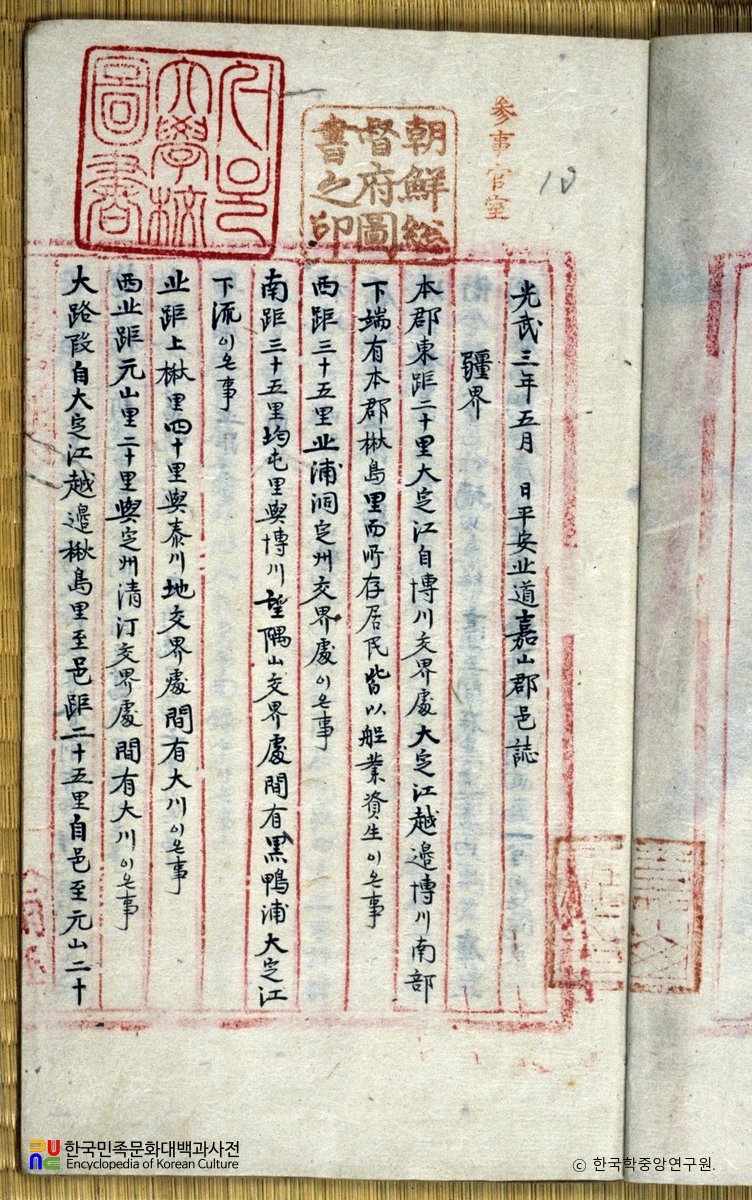 参事官室
10
朝鮮総
督府圖
書之印
서울
大學校
圖書
光武三年五月 日平安北道嘉山郡邑誌
疆界
本郡東距二十里大定江自博川交界處大定江越邊博川南部
下端有本郡楸島里而所存居民皆以船業資生이온事
西距三十五里北浦洞定州交界處이온事
南距三十五里均屯里與博川望隅山交界處間有黑鴨浦大定江
下流이온事
北距上楸里四十里與泰川地交界處間有大川이온事
西北距元山里二十里與定州清汀交界處間有大川이온事
大路段自大定江越邊楸島里至邑距二十五里自邑至元山二十
한국민족문화대백과사전
Encyclopedia of Korean Culture
© 한국학중앙연구원.